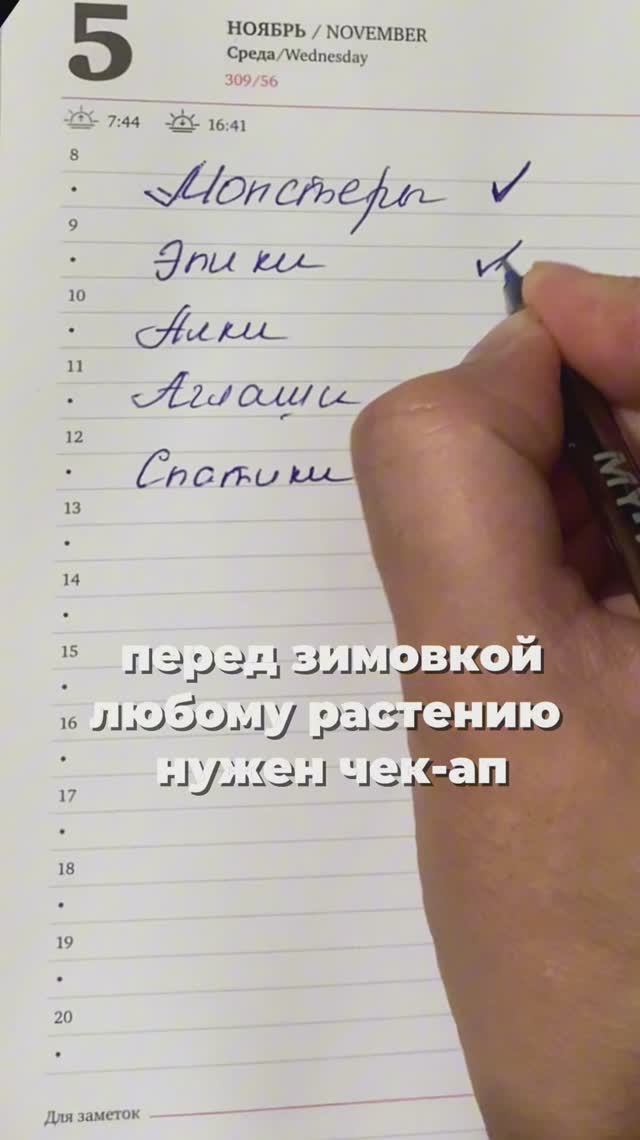 5
НОЯБРЬ / NOVEMBER
Среда/Wednesday
309/56
7:44 16:41
8
Монстеры ✓
9
Эпики ✓
10
Алки
11
Аглаши
12
Спатики
13
14
15
перед зимовкой
любому растению
16
нужен чек-ап
17
18
19
20
Для заметок